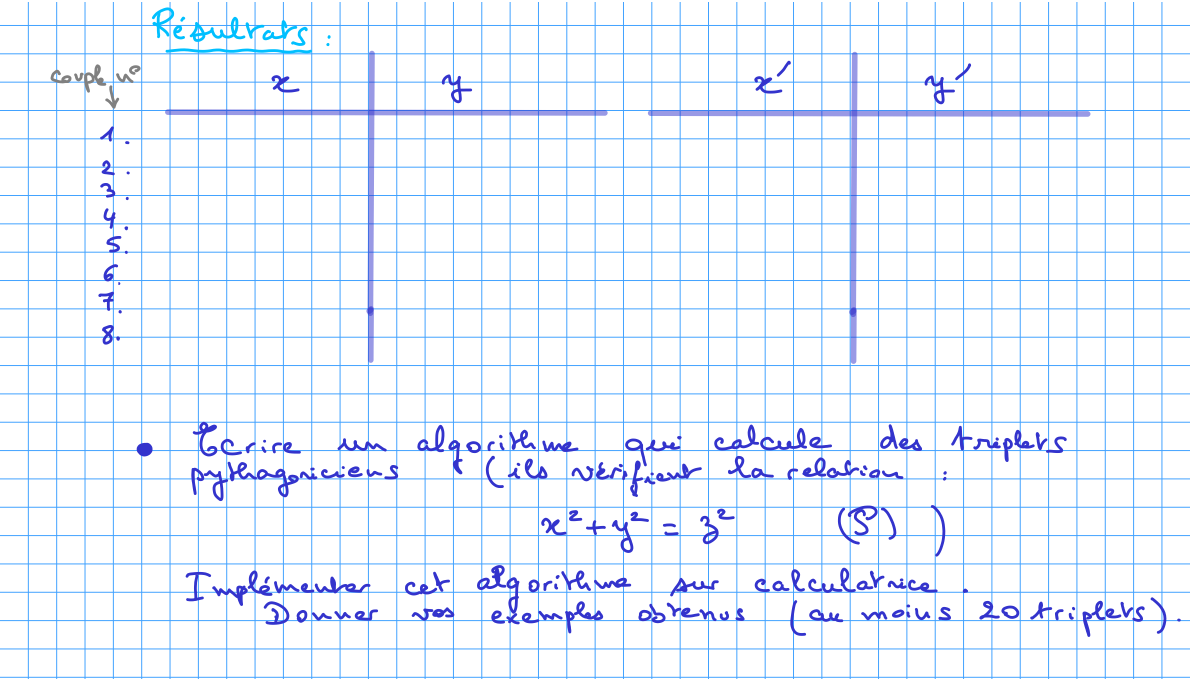 Résultats :
couple n°
x y x' y'
1.
2.
3.
4.
5.
6.
7.
8.
• Ecrire un algorithme qui calcule des triplets
pythagoriciens (ils vérifient la relation :
x² + y² = z² (S) )
Implémenter cet algorithme sur calculatrice.
Donner vos exemples obtenus (au moins 20 triplets).